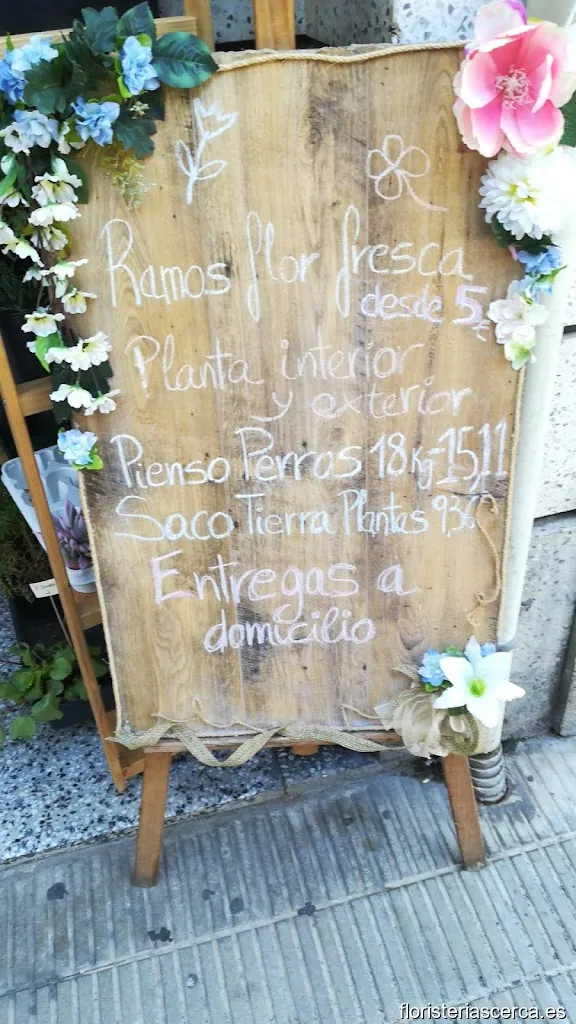 Ramos flor fresca
desde 5€
Planta interior
y exterior
Pienso Perros 18Kg-15,11
Saco Tierra Plantas 9,36
Entregas a
domicilio
floristeriascerca.es